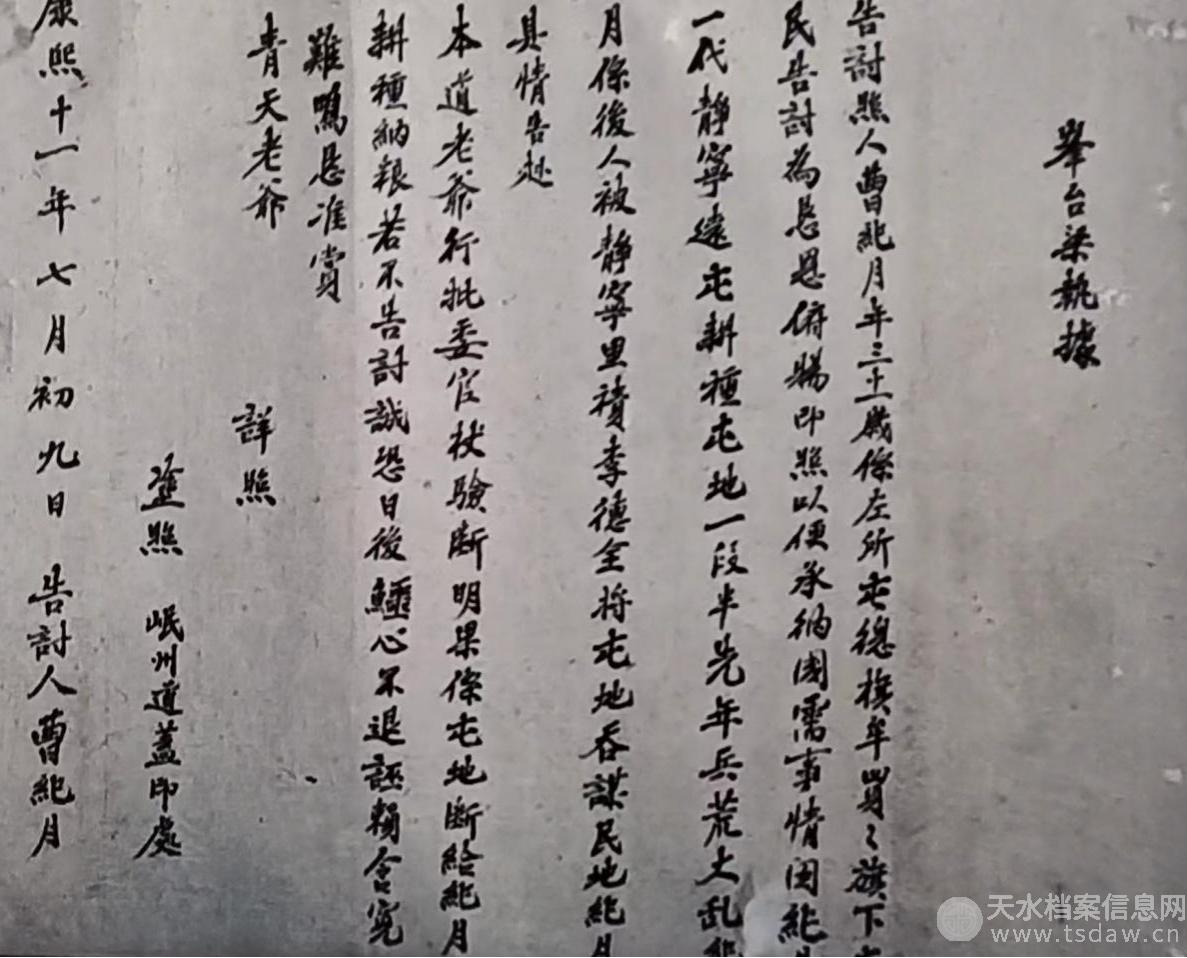 舉台梁執據
告討照人曹紀月年三十一歲係左所屯總旗牟 旗下
民告討為懇恩俯賜印照以便承納國需事情因紀
一代靜寧遠屯耕種屯地一段半先年兵荒大亂
月係後人被靜寧里 李德全將屯地吞謀民地紀月
具情告赴
本道老爺行批委官杖驗斷明果係屯地斷給紀月
耕種納粮若不告討誠恐日後鱷心不退誣賴含冤
難鳴懇准賞
青天老爺 詳照
 照 岷州道蓋印處
康熙十一年七月初九日 告討人曹紀月
天水档案信息网
www.tsdaw.cn